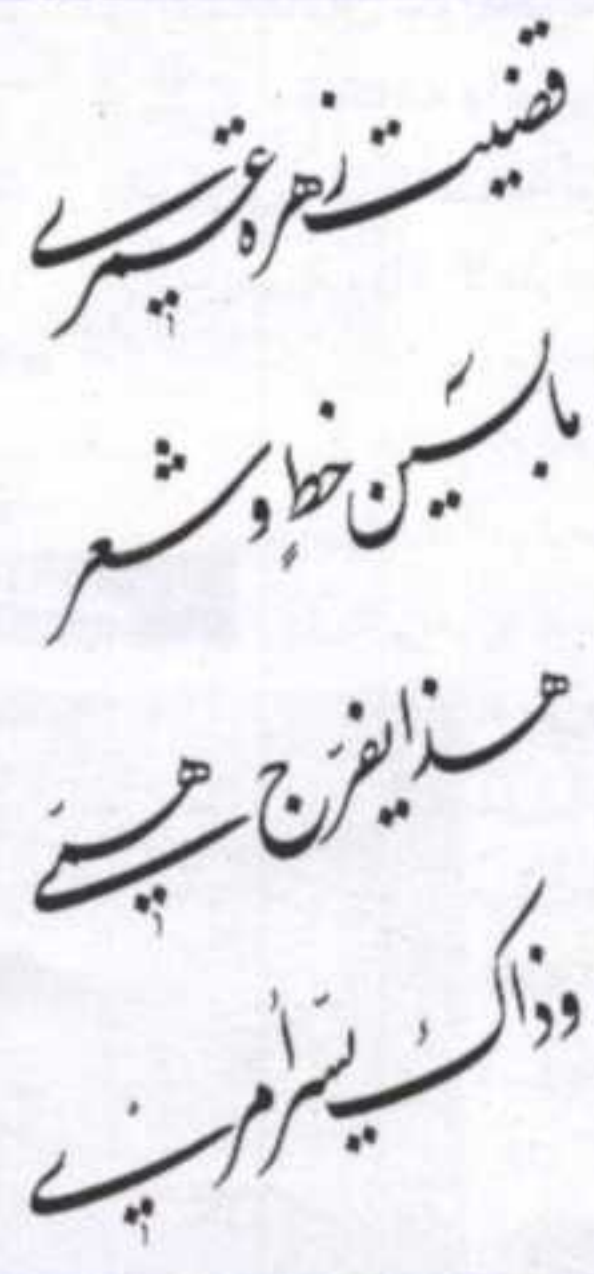 قضيت زهرة عمري
ما بين خطٍ وشعر
هذا يفرّج همّي
وذاك يسّر أمري